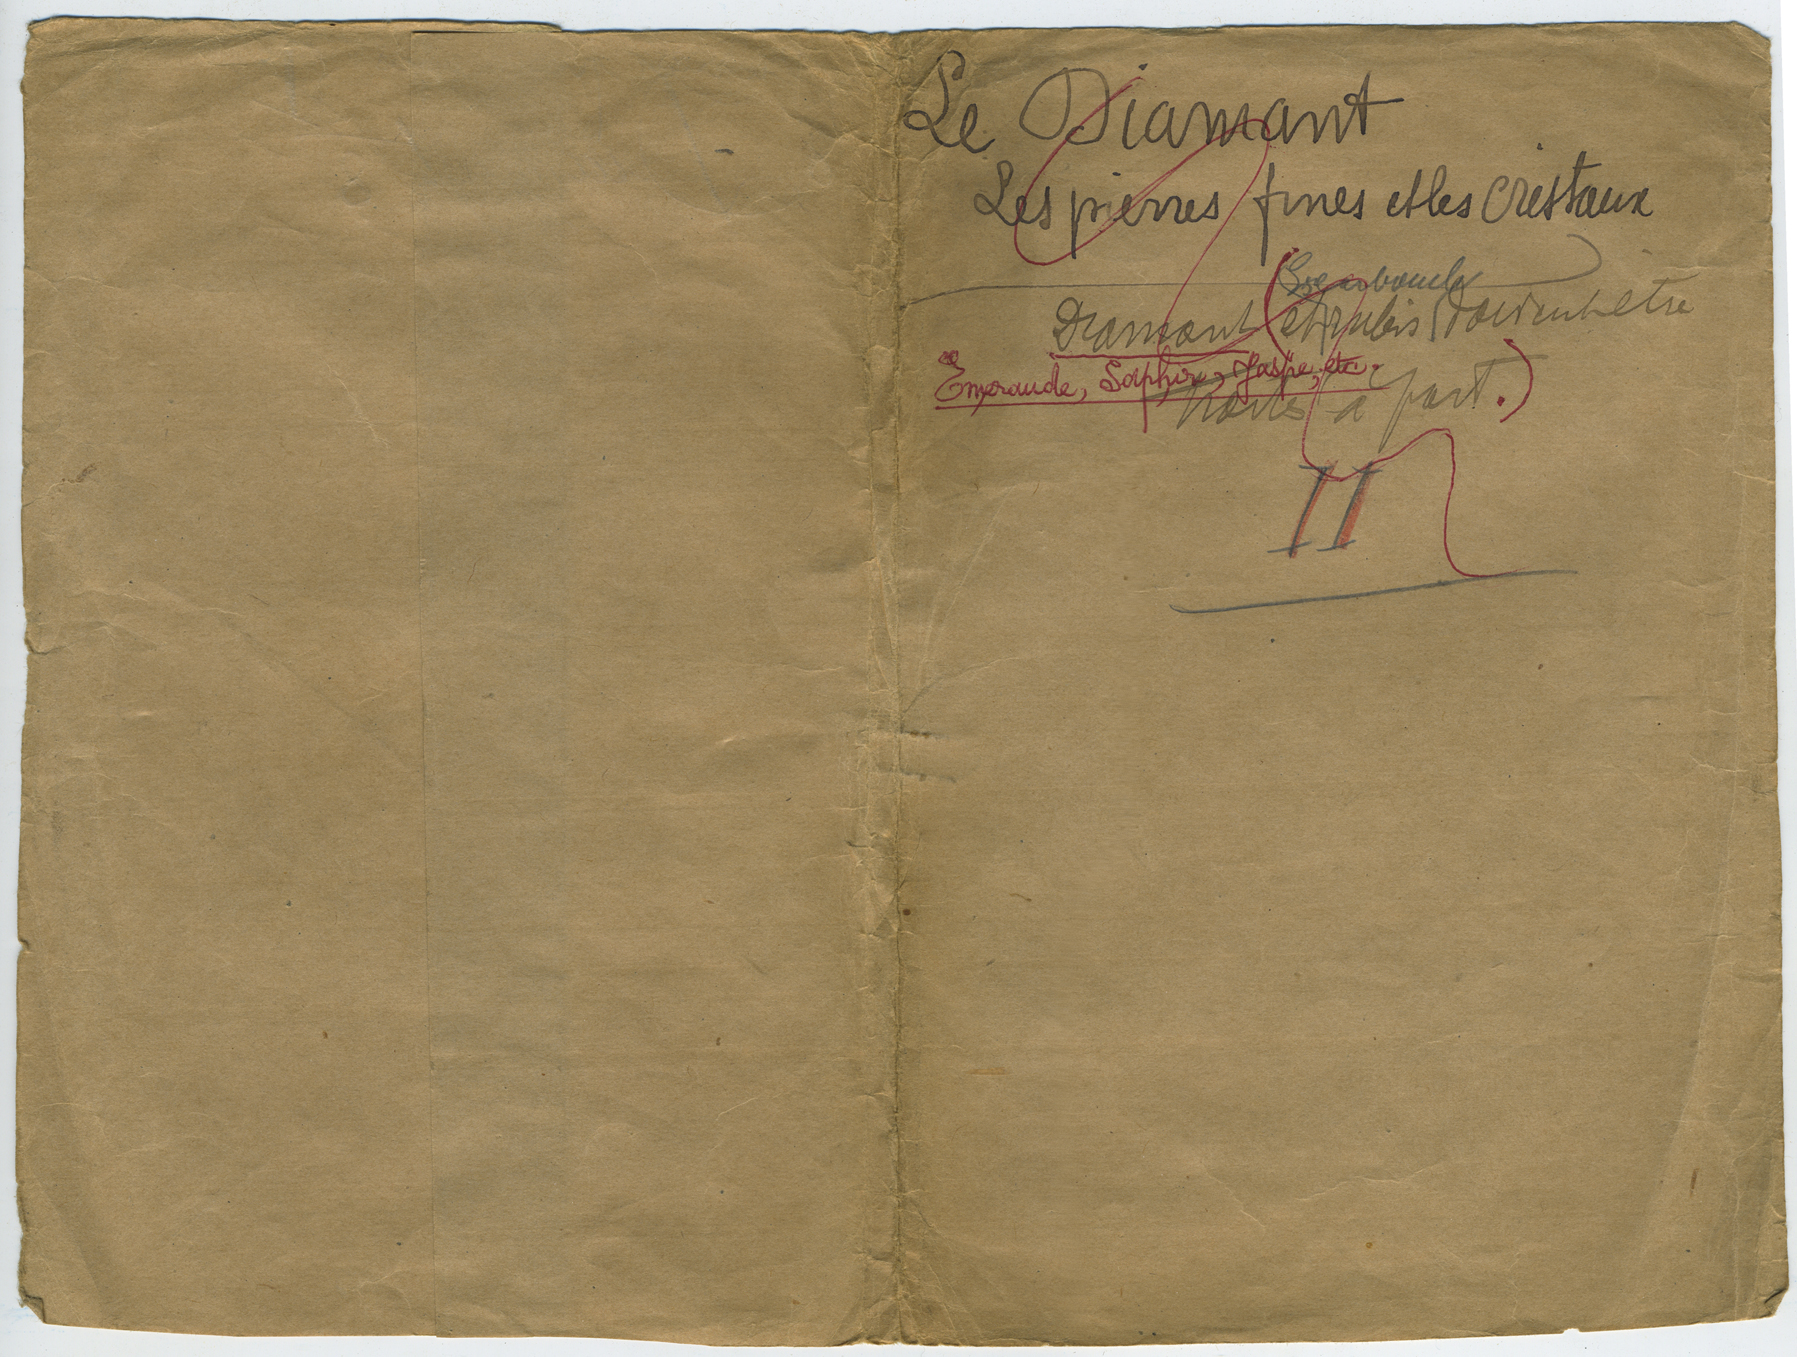 Le Diamant
Les pierres fines et les cristaux
Escarboucle
Diamant (et rubis) doivent être
Emeraude, Saphir, Jaspe, etc.
traités à part.)
II